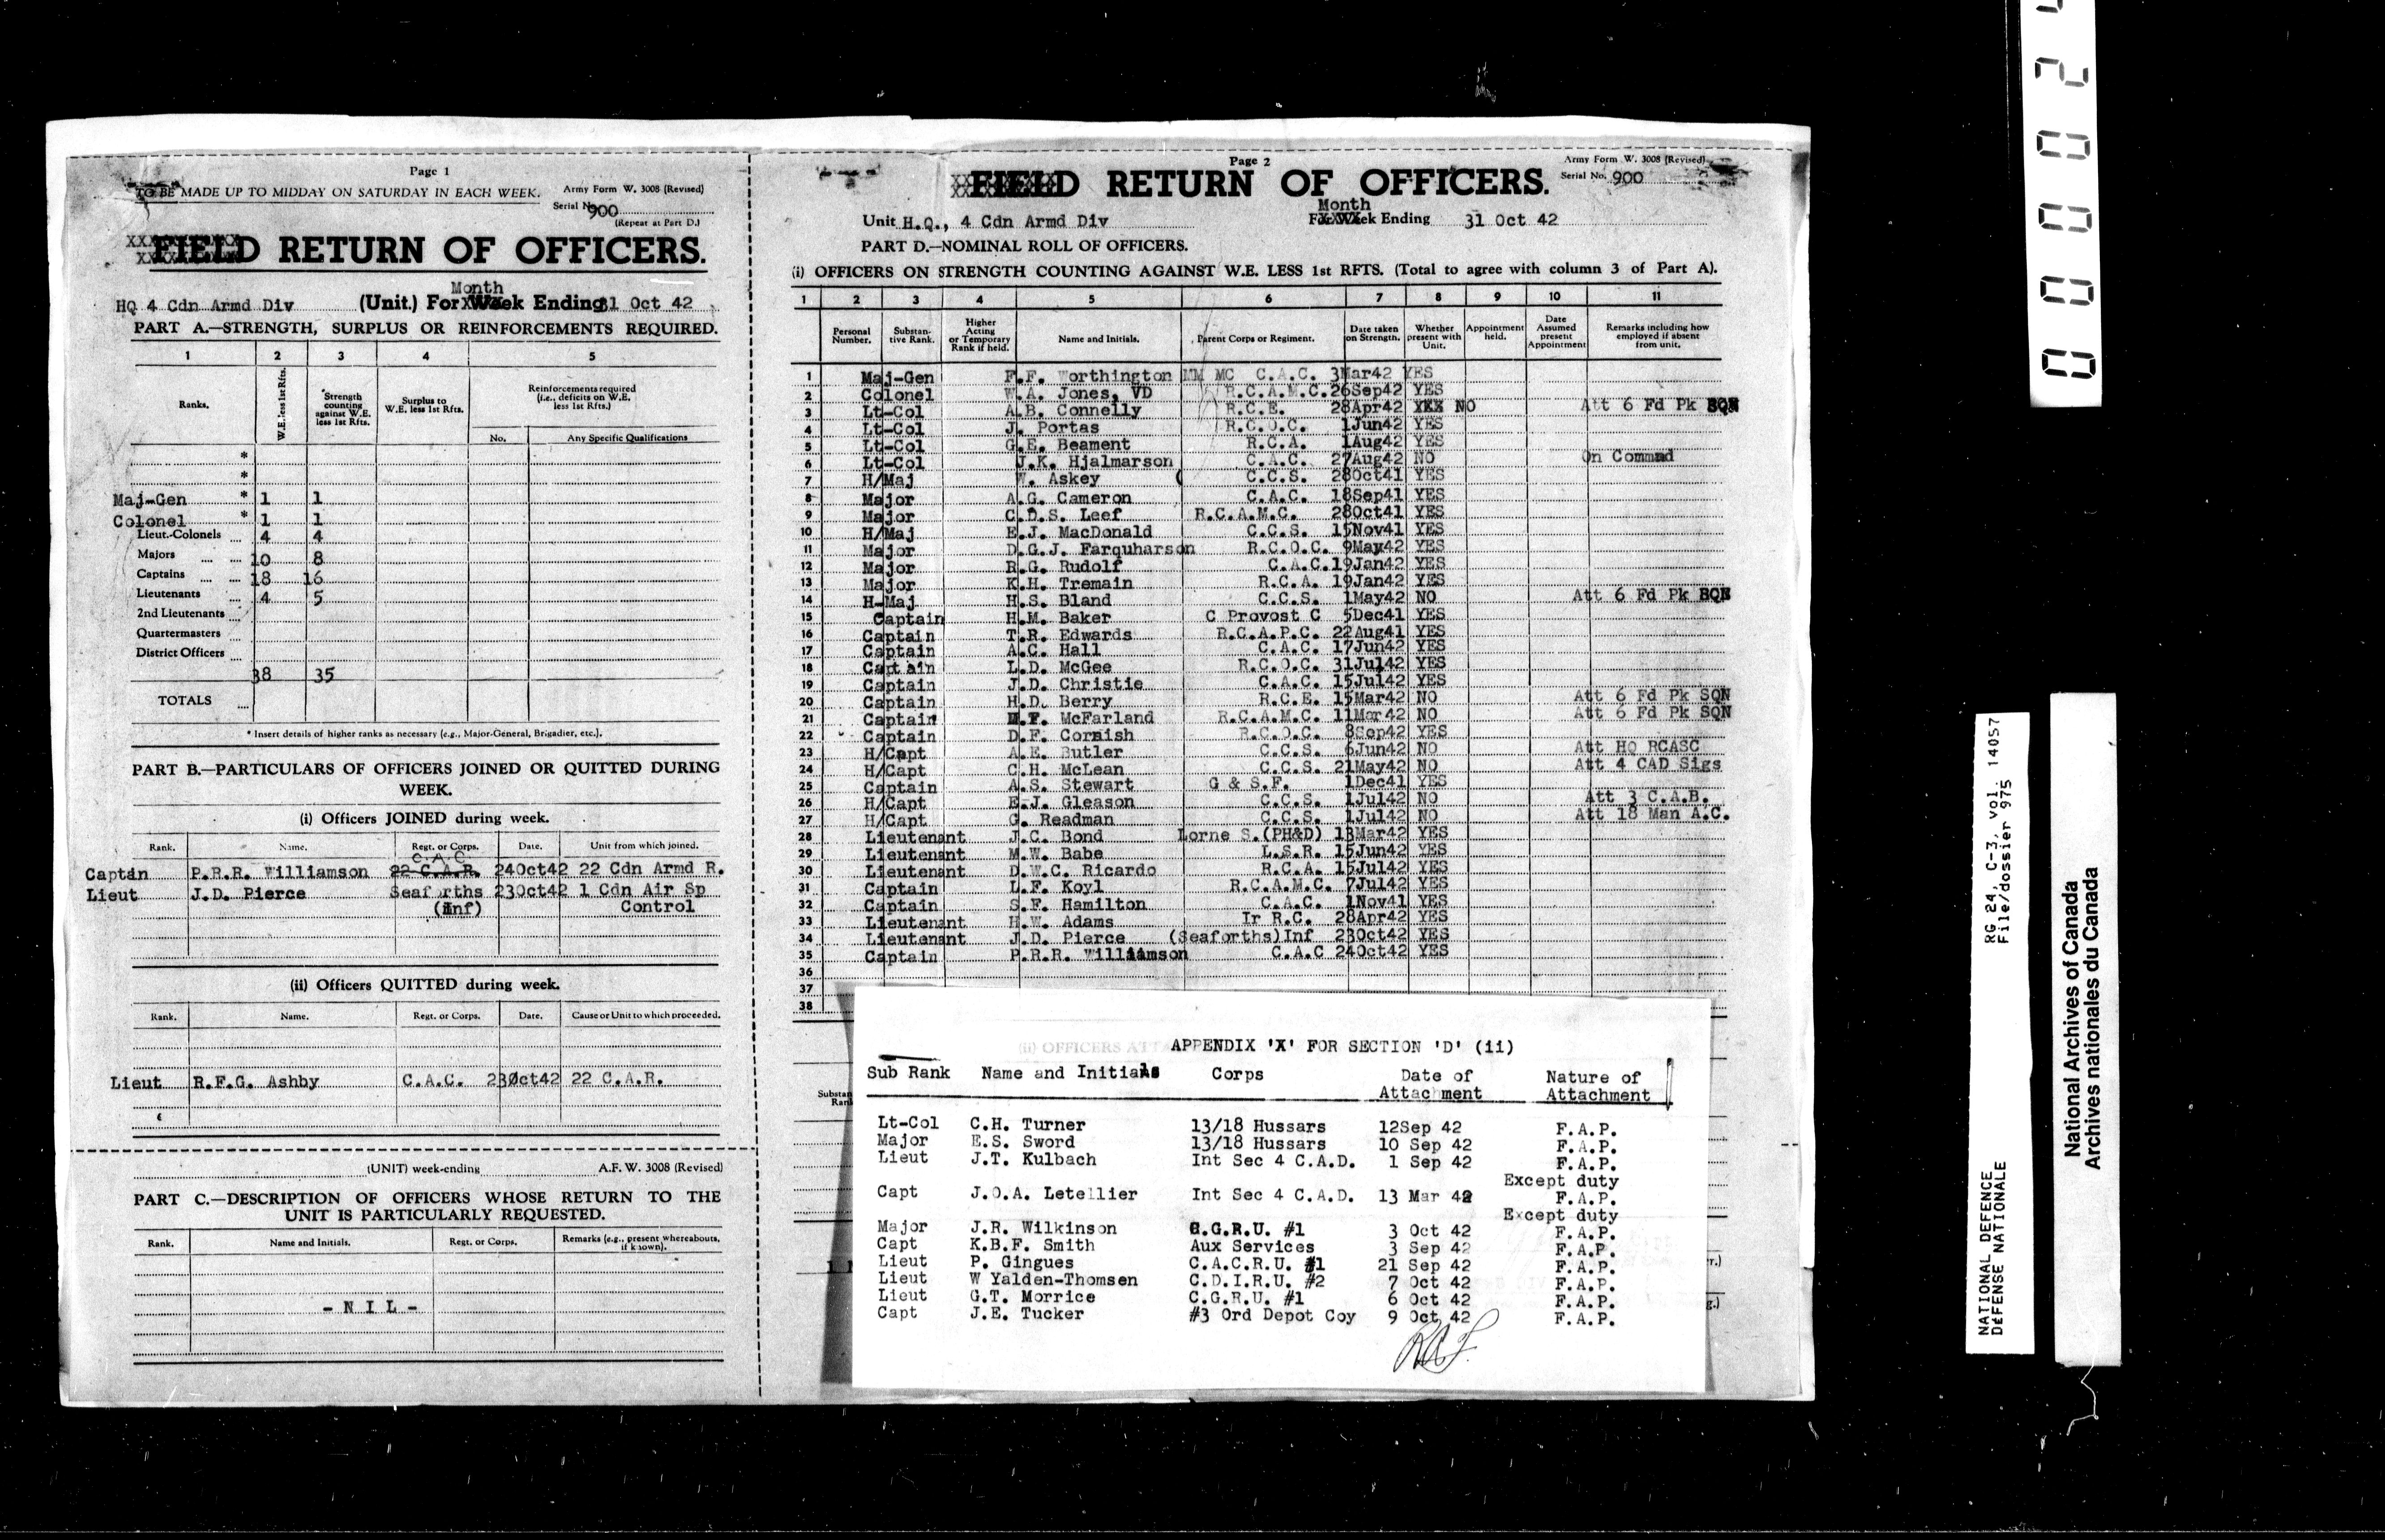 Page 1
TO BE MADE UP TO MIDDAY ON SATURDAY IN EACH WEEK.
Army Form W. 3008 (Revised)
Serial No. 900
(Repeat at Part D.)
FIELD RETURN OF OFFICERS.
Month
HQ 4 Cdn Armd Div (Unit.) For Week Ending 31 Oct 42
PART A.—STRENGTH, SURPLUS OR REINFORCEMENTS REQUIRED.
1 2 3 4 5
Ranks. W.E. less 1st Rfts. *Strength counting against W.E. less 1st Rfts. Surplus to W.E. less 1st Rfts. Reinforcements required (i.e., deficits on W.E. less 1st Rfts.)
No. Any Specific Qualifications
*
*
Maj-Gen * 1 1
Colonel * 1 1
Lieut.-Colonels ... 4 4
Majors ... ... 10 8
Captains ... ... 18 16
Lieutenants ... 4 5
2nd Lieutenants ...
Quartermasters ...
District Officers ...
38 35
TOTALS ...
* Insert details of higher ranks as necessary (e.g., Major-General, Brigadier, etc.).
PART B.—PARTICULARS OF OFFICERS JOINED OR QUITTED DURING
WEEK.
(i) Officers JOINED during week.
Rank. Name. Regt. or Corps. Date. Unit from which joined.
C.A.C
Captan P.R.R. Williamson 22 C.A.R. 24Oct42 22 Cdn Armd R.
Lieut J.D. Pierce Seaforths 23Oct42 1 Cdn Air Sp
(Inf) Control
(ii) Officers QUITTED during week.
Rank. Name. Regt. or Corps. Date. Cause or Unit to which proceeded.
Lieut R.F.G. Ashby C.A.C. 23Oct42 22 C.A.R.
(UNIT) week-ending A.F. W. 3008 (Revised)
PART C.—DESCRIPTION OF OFFICERS WHOSE RETURN TO THE
UNIT IS PARTICULARLY REQUESTED.
Rank. Name and Initials. Regt. or Corps. Remarks (e.g., present whereabouts, if known).
- N I L -
Page 2
Army Form W. 3008 (Revised)
FIELD RETURN OF OFFICERS.
Serial No. 900
Month
Unit H.Q., 4 Cdn Armd Div For Week Ending 31 Oct 42
PART D.—NOMINAL ROLL OF OFFICERS.
(i) OFFICERS ON STRENGTH COUNTING AGAINST W.E. LESS 1st RFTS. (Total to agree with column 3 of Part A).
1 2 3 4 5 6 7 8 9 10 11
Personal Number. Substantive Rank. Higher Acting or Temporary Rank if held. Name and Initials. Parent Corps or Regiment. Date taken on Strength. Whether present with Unit. Appointment held. Date Assumed present Appointment Remarks including how employed if absent from unit.
1 Maj-Gen F.F. Worthington MM MC C.A.C. 3Mar42 YES
2 Colonel W.A. Jones, VD R.C.A.M.C. 26Sep42 YES
3 Lt-Col A.B. Connelly R.C.E. 28Apr42 YES NO Att 6 Fd Pk SQN
4 Lt-Col J. Portas R.C.O.C. 1Jun42 YES
5 Lt-Col G.E. Beament R.C.A. 1Aug42 YES
6 Lt-Col J.K. Hjalmarson C.A.C. 27Aug42 NO On Commad
7 H/Maj W. Askey ( C.C.S. 28Oct41 YES
8 Major A.G. Cameron C.A.C. 18Sep41 YES
9 Major C.D.S. Leef R.C.A.M.C. 28Oct41 YES
10 H/Maj E.J. MacDonald C.C.S. 15Nov41 YES
11 Major D.G.J. Farquharson R.C.O.C. 9May42 YES
12 Major R.G. Rudolf C.A.C. 19Jan42 YES
13 Major K.H. Tremain R.C.A. 19Jan42 YES
14 H-Maj H.S. Bland C.C.S. 1May42 NO Att 6 Fd Pk SQN
15 Captain H.M. Baker C Provost C 5Dec41 YES
16 Captain T.R. Edwards R.C.A.P.C. 22Aug41 YES
17 Captain A.C. Hall C.A.C. 17Jun42 YES
18 Captain L.D. McGee R.C.O.C. 31Jul42 YES
19 Captain J.D. Christie C.A.C. 15Jul42 YES
20 Captain H.D. Berry R.C.E. 15Mar42 NO Att 6 Fd Pk SQN
21 Captain M.F. McFarland R.C.A.M.C. 11Mar42 NO Att 6 Fd Pk SQN
22 Captain D.F. Cornish R.C.O.C. 8Sep42 YES
23 H/Capt A.E. Butler C.C.S. 6Jun42 NO Att HQ RCASC
24 H/Capt C.H. McLean C.C.S. 21May42 NO Att 4 CAD Sigs
25 Captain A.S. Stewart G & S.F. 1Dec41 YES
26 H/Capt E.J. Gleason C.C.S. 1Jul42 NO Att 3 C.A.B.
27 H/Capt G. Readman C.C.S. 1Jul42 NO Att 18 Man A.C.
28 Lieutenant J.C. Bond Lorne S.(PH&D) 13Mar42 YES
29 Lieutenant M.W. Babe L.S.R. 15Jun42 YES
30 Lieutenant D.W.C. Ricardo R.C.A. 15Jul42 YES
31 Captain L.F. Koyl R.C.A.M.C. 7Jul42 YES
32 Captain S.F. Hamilton C.A.C. 1Nov41 YES
33 Lieutenant H.W. Adams Ir R.C. 28Apr42 YES
34 Lieutenant J.D. Pierce (Seaforths)Inf 23Oct42 YES
35 Captain P.R.R. Williamson C.A.C 24Oct42 YES
36
37
38
APPENDIX 'X' FOR SECTION 'D' (ii)
Sub Rank Name and Initials Corps Date of Attachment Nature of Attachment
Lt-Col C.H. Turner 13/18 Hussars 12Sep 42 F.A.P.
Major E.S. Sword 13/18 Hussars 10 Sep 42 F.A.P.
Lieut J.T. Kulbach Int Sec 4 C.A.D. 1 Sep 42 F.A.P.
Except duty
Capt J.O.A. Letellier Int Sec 4 C.A.D. 13 Mar 42 F.A.P.
Except duty
Major J.R. Wilkinson C.G.R.U. #1 3 Oct 42 F.A.P.
Capt K.B.F. Smith Aux Services 3 Sep 42 F.A.P.
Lieut P. Gingues C.A.C.R.U. #1 21 Sep 42 F.A.P.
Lieut W Yalden-Thomsen C.D.I.R.U. #2 7 Oct 42 F.A.P.
Lieut G.T. Morrice C.G.R.U. #1 6 Oct 42 F.A.P.
Capt J.E. Tucker #3 Ord Depot Coy 9 Oct 42 F.A.P.
NATIONAL DEFENCE RG 24, C-3, vol. 14057
DÉFENSE NATIONALE File/dossier 975
National Archives of Canada
Archives nationales du Canada